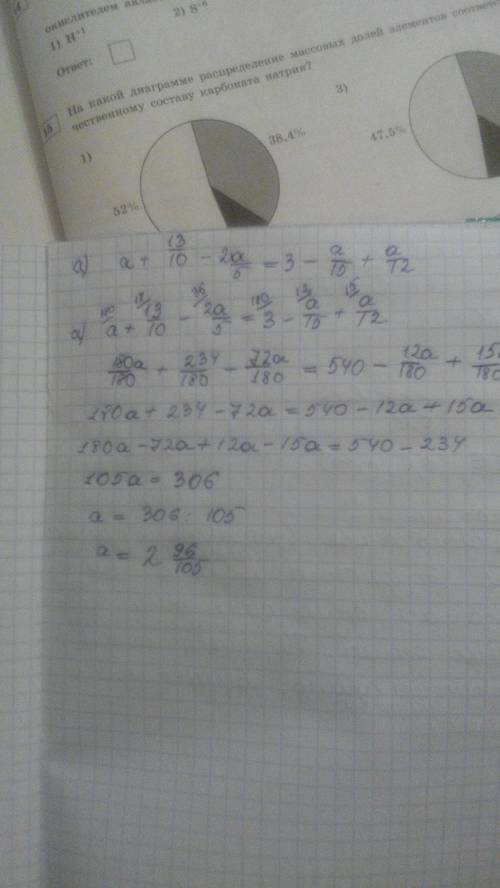 окислителем
1) H⁺¹
2) S⁻⁶
Ответ:
15
На какой диаграмме распределение массовых долей элементов соответ
чественному составу карбоната натрия?
1)
3)
38,4%
47,5%
52%
а) a + 13/10 - 2a/5 = 3 - a/15 + a/12
а) a + 13/10 - 2a/5 = 3 - a/15 + a/12
180a/180 + 234/180 - 72a/180 = 540 - 12a/180 + 15a/180
180a + 234 - 72a = 540 - 12a + 15a
180a - 72a + 12a - 15a = 540 - 234
105a = 306
a = 306 : 105
a = 2 96/105